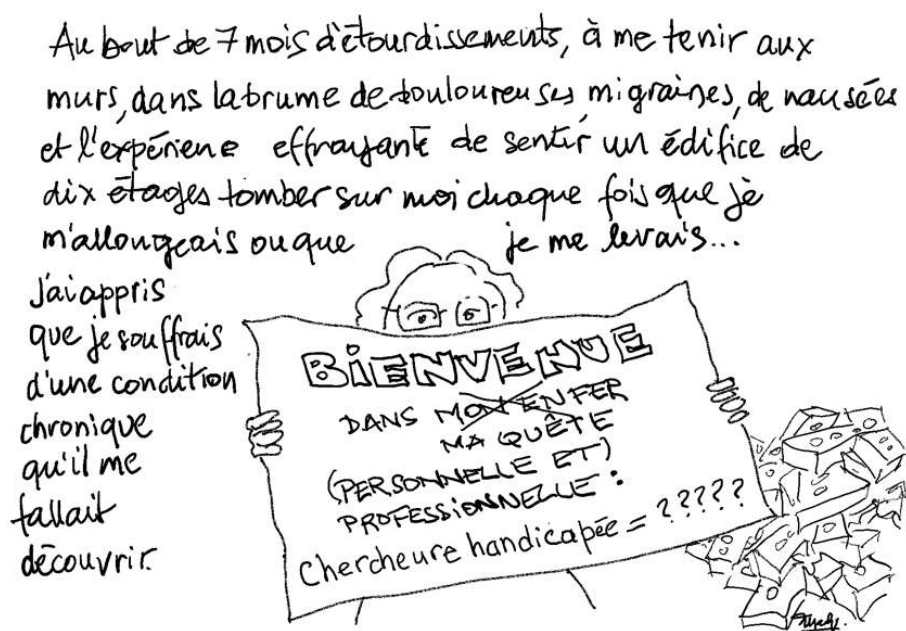 Au bout de 7 mois d'étourdissements, à me tenir aux
murs, dans la brume de douloureuses migraines, de nausées
et l'expérience effrayante de sentir un édifice de
dix étages tomber sur moi chaque fois que je
m'allongeais ou que je me levais...
j'ai appris
que je souffrais
d'une condition
chronique
qu'il me
fallait
découvrir.
BIENVENUE
DANS MON ENFER
MA QUÊTE
(PERSONNELLE ET)
PROFESSIONNELLE :
Chercheure handicapée = ?????